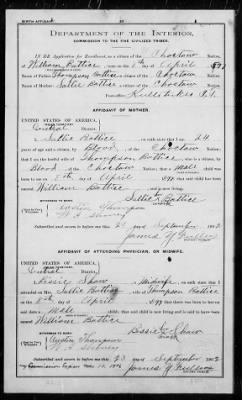 BIRTH AFFIDAVIT.
DEPARTMENT OF THE INTERIOR,
COMMISSION TO THE FIVE CIVILIZED TRIBES.
In Re Application for Enrollment, as a citizen of the Choctaw Nation,
of William Battice born on the 5th day of April
Name of Father: Thompson Battice a citizen of the Choctaw Nation.
Name of Mother: Sallie Battice a citizen of the Choctaw Nation.
AFFIDAVIT OF MOTHER.
UNITED STATES OF AMERICA,
Central District.
I, Sallie Battice, on oath state that I am 24
years of age and a citizen by Blood, of the Choctaw Nation;
that I am the lawful wife of Thompson Battice, who is a citizen, by
Blood of the Choctaw Nation; that a Male child was
born to me on 5th day of April
William Battice
Sallie Battice
WITNESSES TO MARK:
Austin Thompson
Subscribed and sworn to before me this 23 day of September 1902
AFFIDAVIT OF ATTENDING PHYSICIAN, OR MIDWIFE.
UNITED STATES OF AMERICA,
Central District.
I, Bissie Shaw, a Midwife, on oath state that I
attended on Mrs. Sallie Battice, wife of Thompson Battice
on the 5th day of April; that there was born to her on said
date a Male child; that said child is now living and is said to have been
named William Battice
Bissie Shaw
WITNESSES TO MARK:
Austin Thompson
Subscribed and sworn to before me this 23 day of September 1902